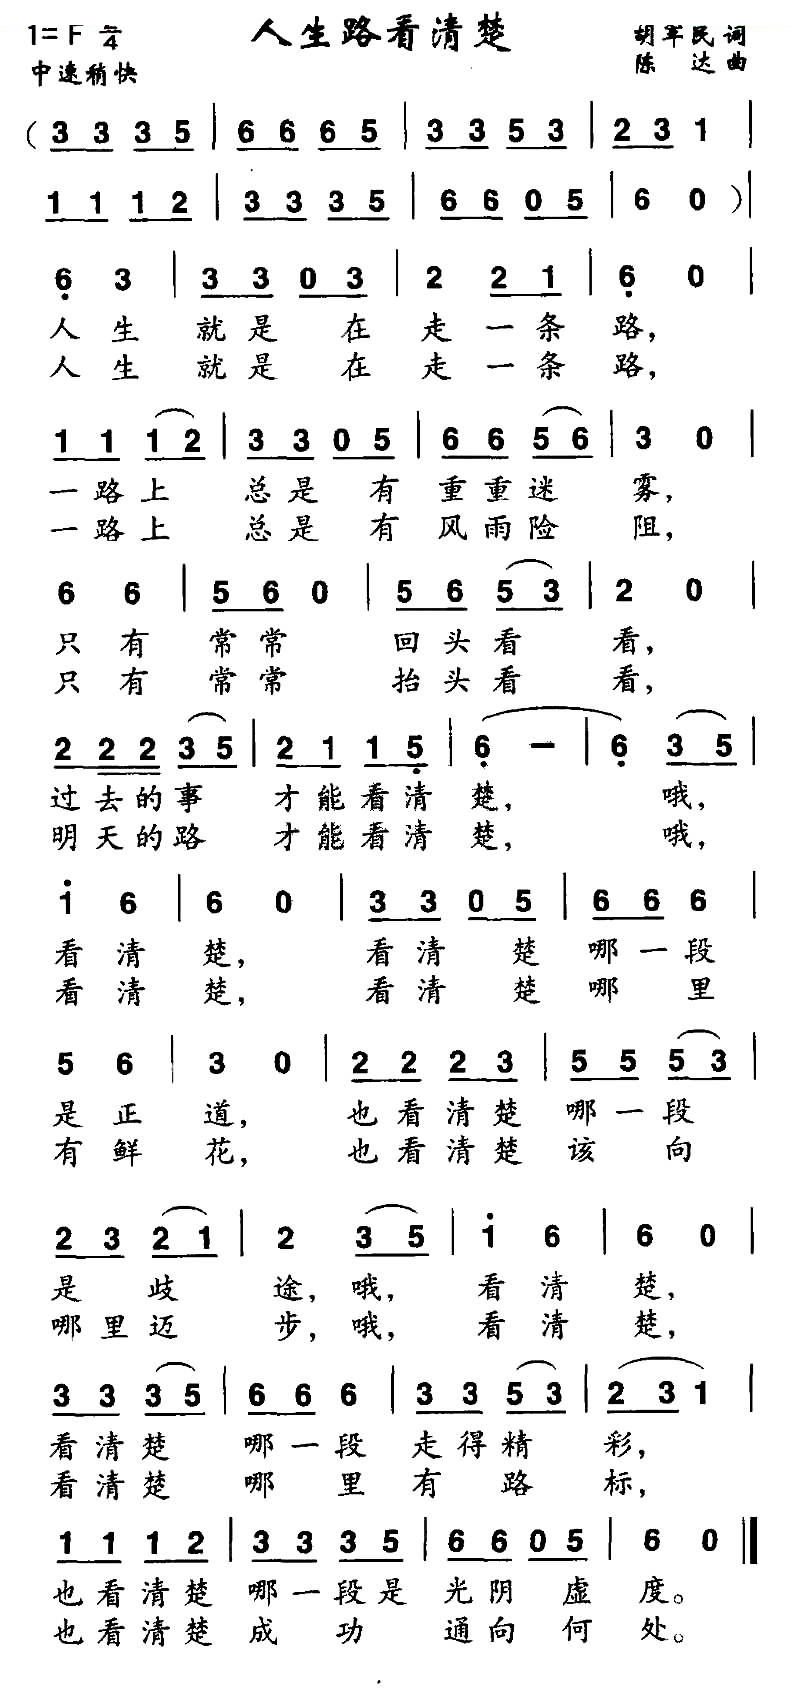 1=F 2/4 人生路看清楚 胡军民 词
中速稍快 陈达 曲
( 3 3 3 5 | 6 6 6 5 | 3 3 5 3 | 2 3 1 |
1 1 1 2 | 3 3 3 5 | 6 6 0 5 | 6 0 ) |
6̣ 3 | 3 3 0 3 | 2 2 1 | 6̣ 0 |
人生 就是 在 走一条路,
人生 就是 在 走一条路,
1 1 1 2 | 3 3 0 5 | 6 6 5 6 | 3 0 |
一路上 总是 有 重重迷 雾,
一路上 总是 有 风雨险 阻,
6 6 | 5 6 0 | 5 6 5 3 | 2 0 |
只有 常常 回头看 看,
只有 常常 抬头看 看,
2 2 2 3 5 | 2 1 1 5̣ | 6̣ － | 6̣ 3 5 |
过去的事 才能看清 楚, 哦,
明天的路 才能看清 楚, 哦,
1̇ 6 | 6 0 | 3 3 0 5 | 6 6 6 |
看清 楚, 看清 楚 哪一段
看清 楚, 看清 楚 哪 里
5 6 | 3 0 | 2 2 2 3 | 5 5 5 3 |
是正 道, 也看清楚 哪一段
有鲜 花, 也看清楚 该 向
2 3 2 1 | 2 3 5 | 1̇ 6 | 6 0 |
是 歧 途, 哦, 看清 楚,
哪里迈 步, 哦, 看清 楚,
3 3 3 5 | 6 6 6 | 3 3 5 3 | 2 3 1 |
看清楚 哪一段 走得精 彩,
看清楚 哪 里 有 路 标,
1 1 1 2 | 3 3 3 5 | 6 6 0 5 | 6 0 ‖
也看清楚 哪一段是 光阴 虚 度。
也看清楚 成 功 通向 何 处。